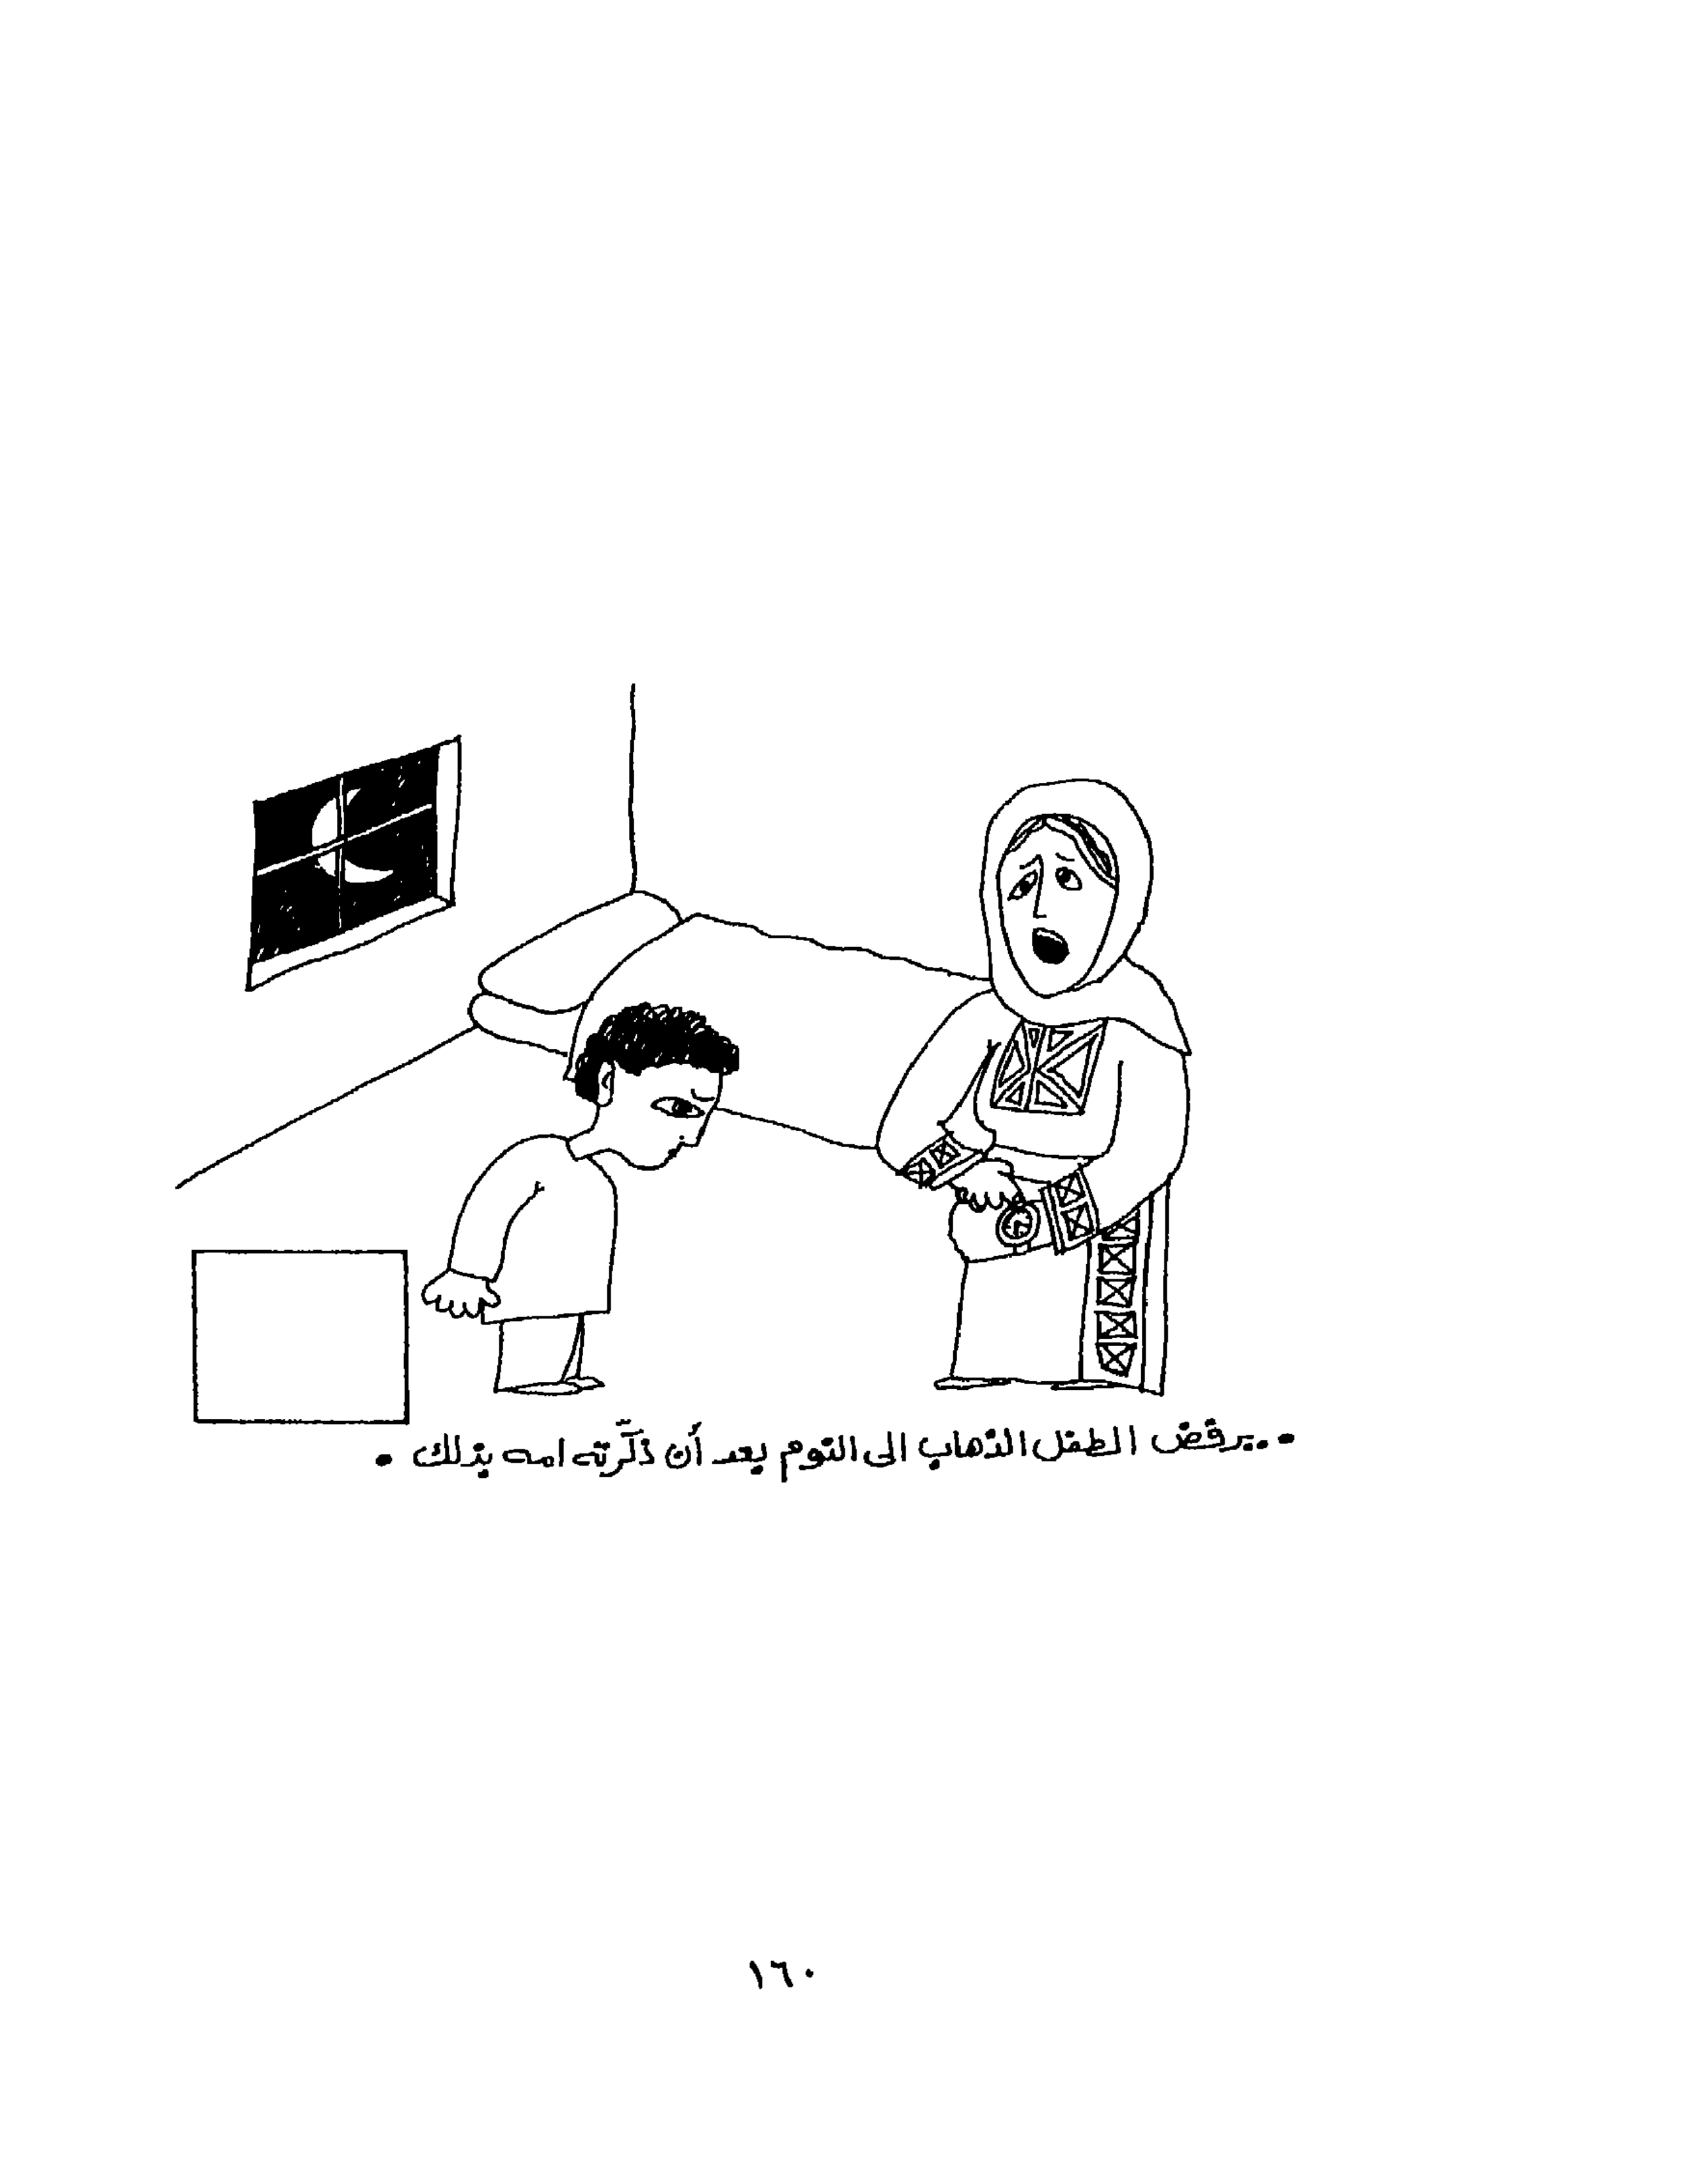 •..يرفض الطفل الذهاب الى النوم بعد أن ذكّرته امه بذلك •
١٦٠